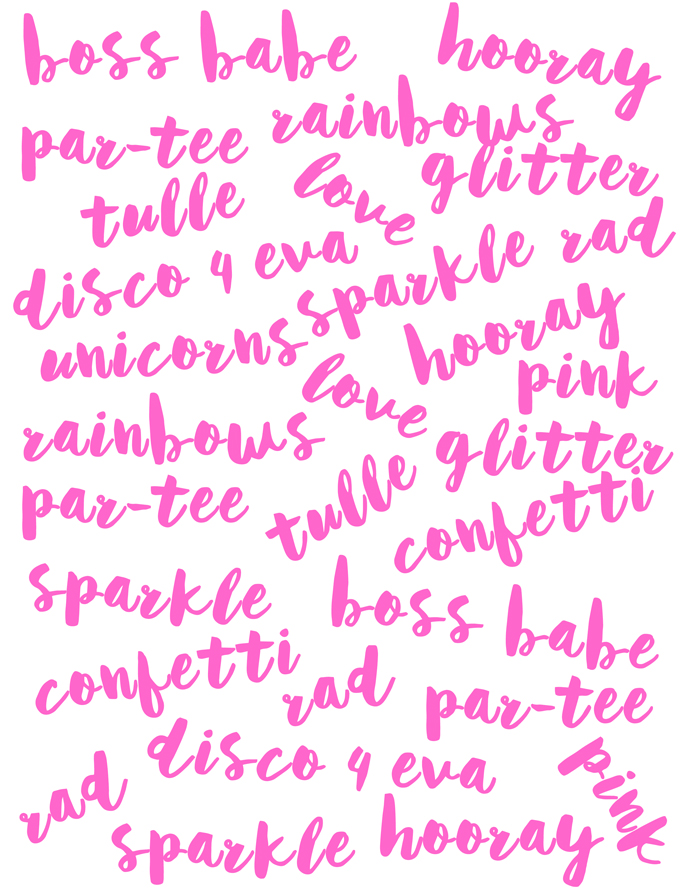 boss babe
hooray
par-tee
rainbows
glitter
tulle
love
disco 4 eva
sparkle
rad
unicorns
hooray
love
pink
rainbows
glitter
par-tee
tulle
confetti
sparkle
boss babe
confetti
rad
par-tee
disco 4 eva
pink
rad
sparkle
hooray